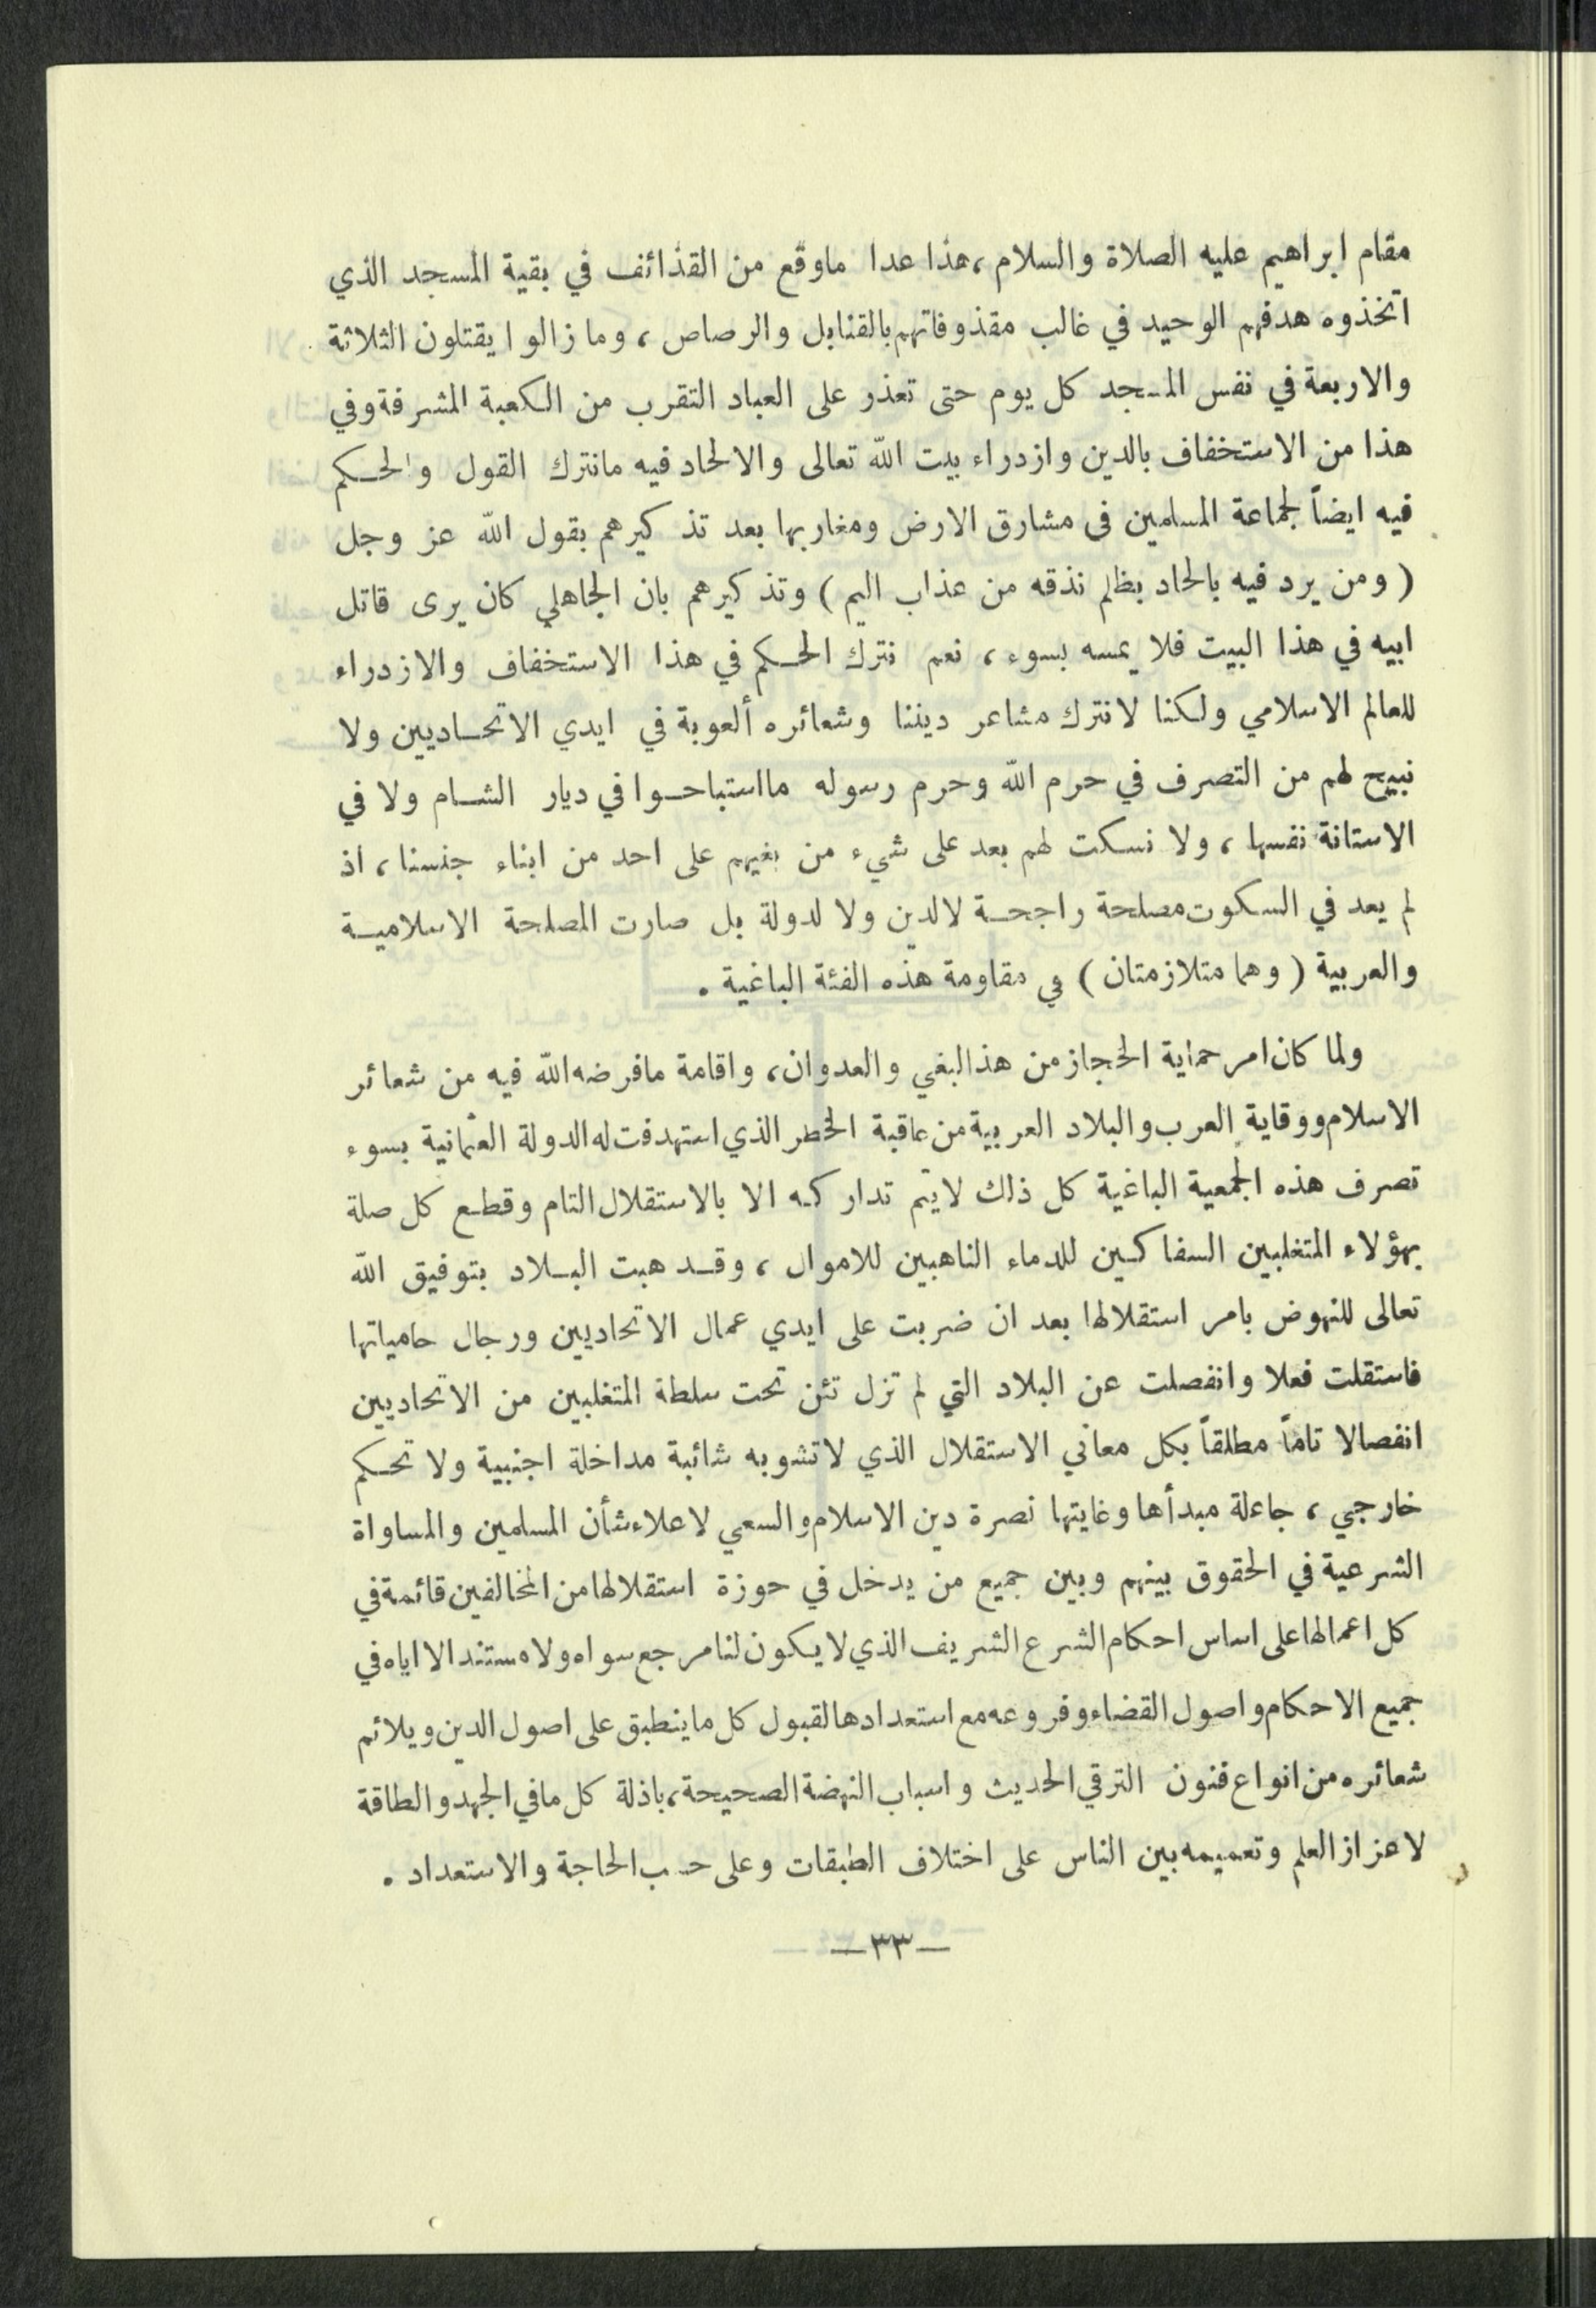 مقام ابراهيم عليه الصلاة والسلام، هذا عدا ماوقع من القذائف في بقية المسجد الذي
اتخذوه هدفهم الوحيد في غالب مقذوفاتهم بالقنابل والرصاص، وما زالوا يقتلون الثلاثة
والاربعة في نفس المسجد كل يوم حتى تعذر على العباد التقرب من الكعبة المشرفة وفي
هذا من الاستخفاف بالدين وازدراء بيت الله تعالى والالحاد فيه مانترك القول والحكم
فيه ايضاً لجماعة المسلمين في مشارق الارض ومغاربها بعد تذكيرهم بقول الله عز وجل
( ومن يرد فيه بالحاد بظلم نذقه من عذاب اليم ) وتذكيرهم بان الجاهلي كان يرى قاتل
ابيه في هذا البيت فلا يمسه بسوء، نعم نترك الحكم في هذا الاستخفاف والازدراء
للعالم الاسلامي ولكنا لانترك مشاعر ديننا وشعائره ألعوبة في ايدي الاتحاديين ولا
نبيح لهم من التصرف في حرم الله وحرم رسوله مااستباحوا في ديار الشام ولا في
الاستانة نفسها، ولا نسكت لهم بعد على شيء من بغيهم على احد من ابناء جنسنا، اذ
لم يعد في السكوت مصلحة راجحة لالدين ولا لدولة بل صارت المصلحة الاسلامية
والعربية ( وهما متلازمتان ) في مقاومة هذه الفئة الباغية .
ولما كان امر حماية الحجاز من هذ البغي والعدوان، واقامة مافرضه الله فيه من شعائر
الاسلام ووقاية العرب والبلاد العربية من عاقبة الخطر الذي استهدفت له الدولة العثمانية بسوء
تصرف هذه الجمعية الباغية كل ذلك لايتم تداركه الا بالاستقلال التام وقطع كل صلة
بهؤلاء المتغلبين السفاكين للدماء الناهبين للاموال، وقد هبت البلاد بتوفيق الله
تعالى للنهوض بامر استقلالها بعد ان ضربت على ايدي عمال الاتحاديين ورجال حامياتها
فاستقلت فعلا وانفصلت عن البلاد التي لم تزل تئن تحت سلطة المتغلبين من الاتحاديين
انفصالا تاماً مطلقاً بكل معاني الاستقلال الذي لاتشوبه شائبة مداخلة اجنبية ولا تحكم
خارجي، جاعلة مبدأها وغايتها نصرة دين الاسلام والسعي لاعلاء شأن المسلمين والمساواة
الشرعية في الحقوق بينهم وبين جميع من يدخل في حوزة استقلالها من المخالفين قائمة في
كل اعمالها على اساس احكام الشرع الشريف الذي لايكون لنا مرجع سواه ولا مستند الا اياه في
جميع الاحكام واصول القضاء وفروعه مع استعدادها لقبول كل ماينطبق على اصول الدين ويلائم
شعائره من انواع فنون الترقي الحديث واسباب النهضة الصحيحة، باذلة كل مافي الجهد والطاقة
لاعزاز العلم وتعميمه بين الناس على اختلاف الطبقات وعلى حسب الحاجة والاستعداد .
—٣٣—